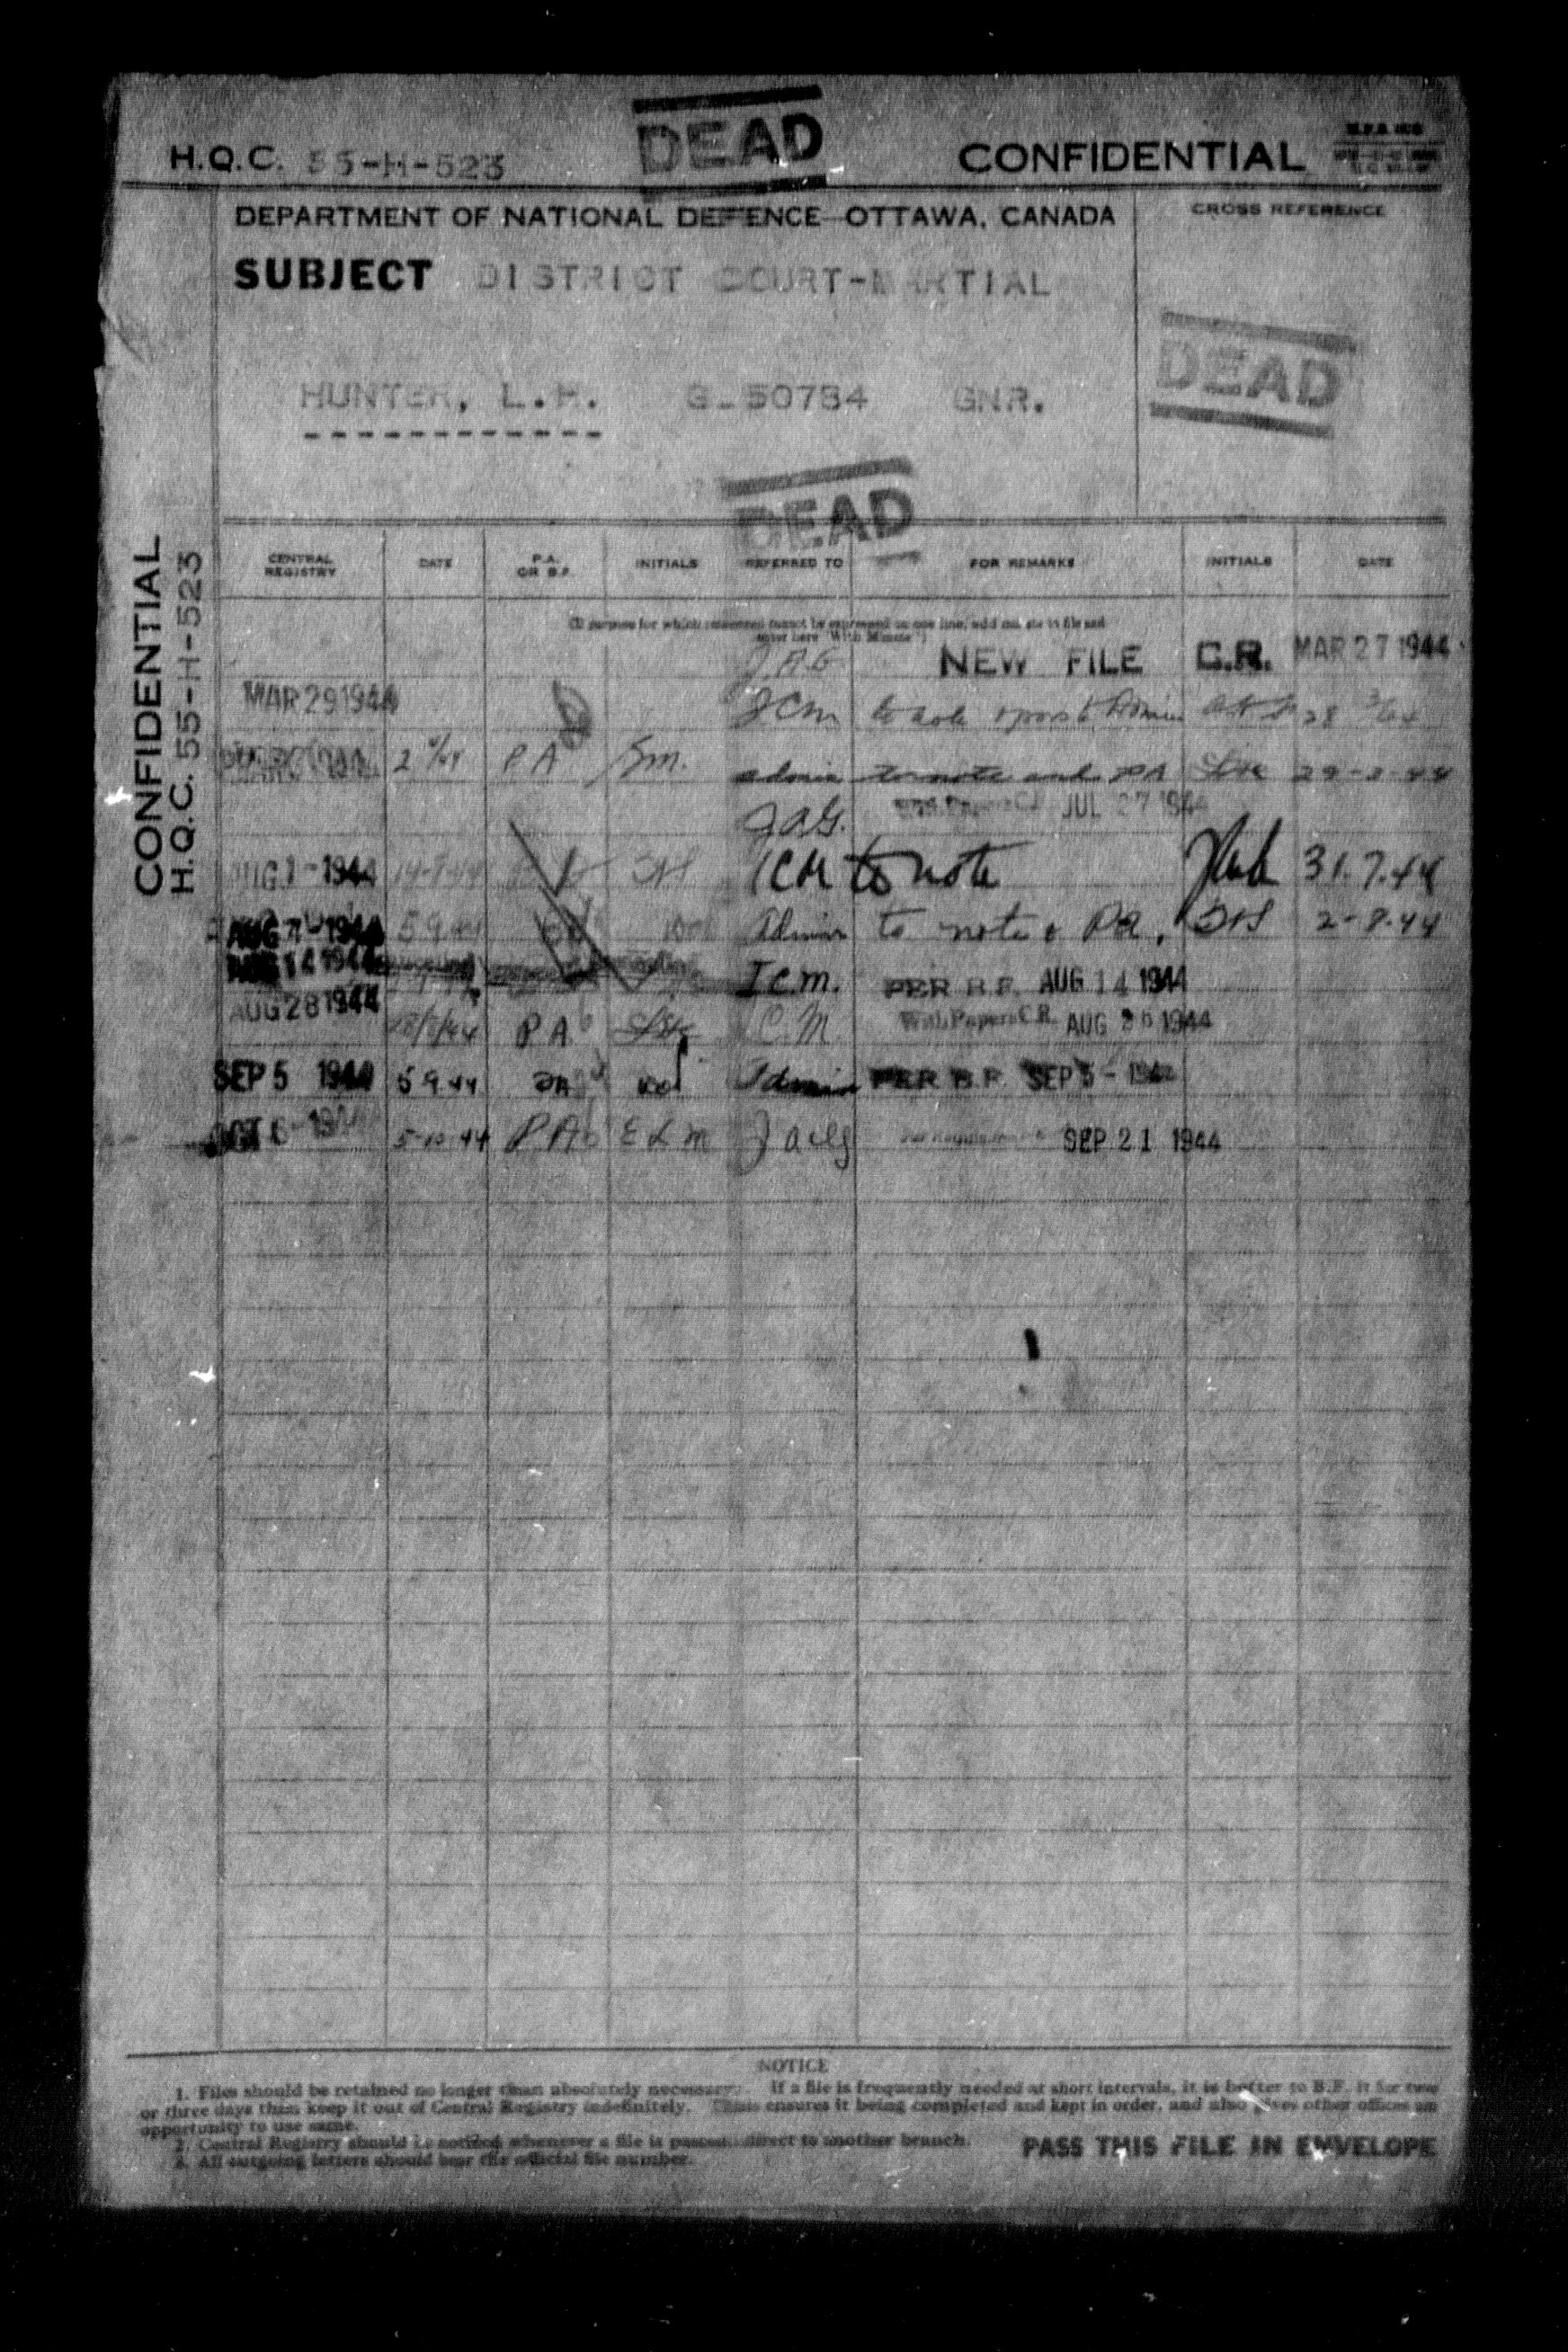 DEAD
H.Q.C. 55-H-523 CONFIDENTIAL
DEPARTMENT OF NATIONAL DEFENCE—OTTAWA, CANADA CROSS REFERENCE
SUBJECT DISTRICT COURT-MARTIAL
DEAD
HUNTER, L.H. G-50784 GNR.
DEAD
CONFIDENTIAL
H.Q.C. 55-H-523
CENTRAL REGISTRY DATE P.A. OR B.F. INITIALS REFERRED TO FOR REMARKS INITIALS DATE
(If purpose for which referred cannot be expressed on one line, add minute in file and
enter here "With Minute")
J.A.G. NEW FILE C.R. MAR 27 1944
MAR 29 1944 JCM to note 28
PA Sm. admin to note and PA 29-3-44
JAG. With Papers C.R. JUL 27 1944
AUG 1-1944 JCM to note 31.7.44
AUG 7-1944 5 9.44 Admin to note & PA. 2-8-44
AUG 14 1944 J.C.M. PER B.F. AUG 14 1944
AUG 28 1944 PA With Papers C.R. AUG 1944
SEP 5 1944 5 9.44 PA Admin PER B.F. SEP 5-1944
OCT 6-1944 5-10-44 PA E L M JAG SEP 21 1944
NOTICE
1. Files should be retained no longer than absolutely necessary. If a file is frequently needed at short intervals, it is better to B.F. it for two
or three days then keep it out of Central Registry indefinitely. This ensures it being completed and kept in order, and also gives other offices an
opportunity to use same.
2. Central Registry should be notified whenever a file is passed direct to another branch.
3. All outgoing letters should bear the official file number.
PASS THIS FILE IN ENVELOPE